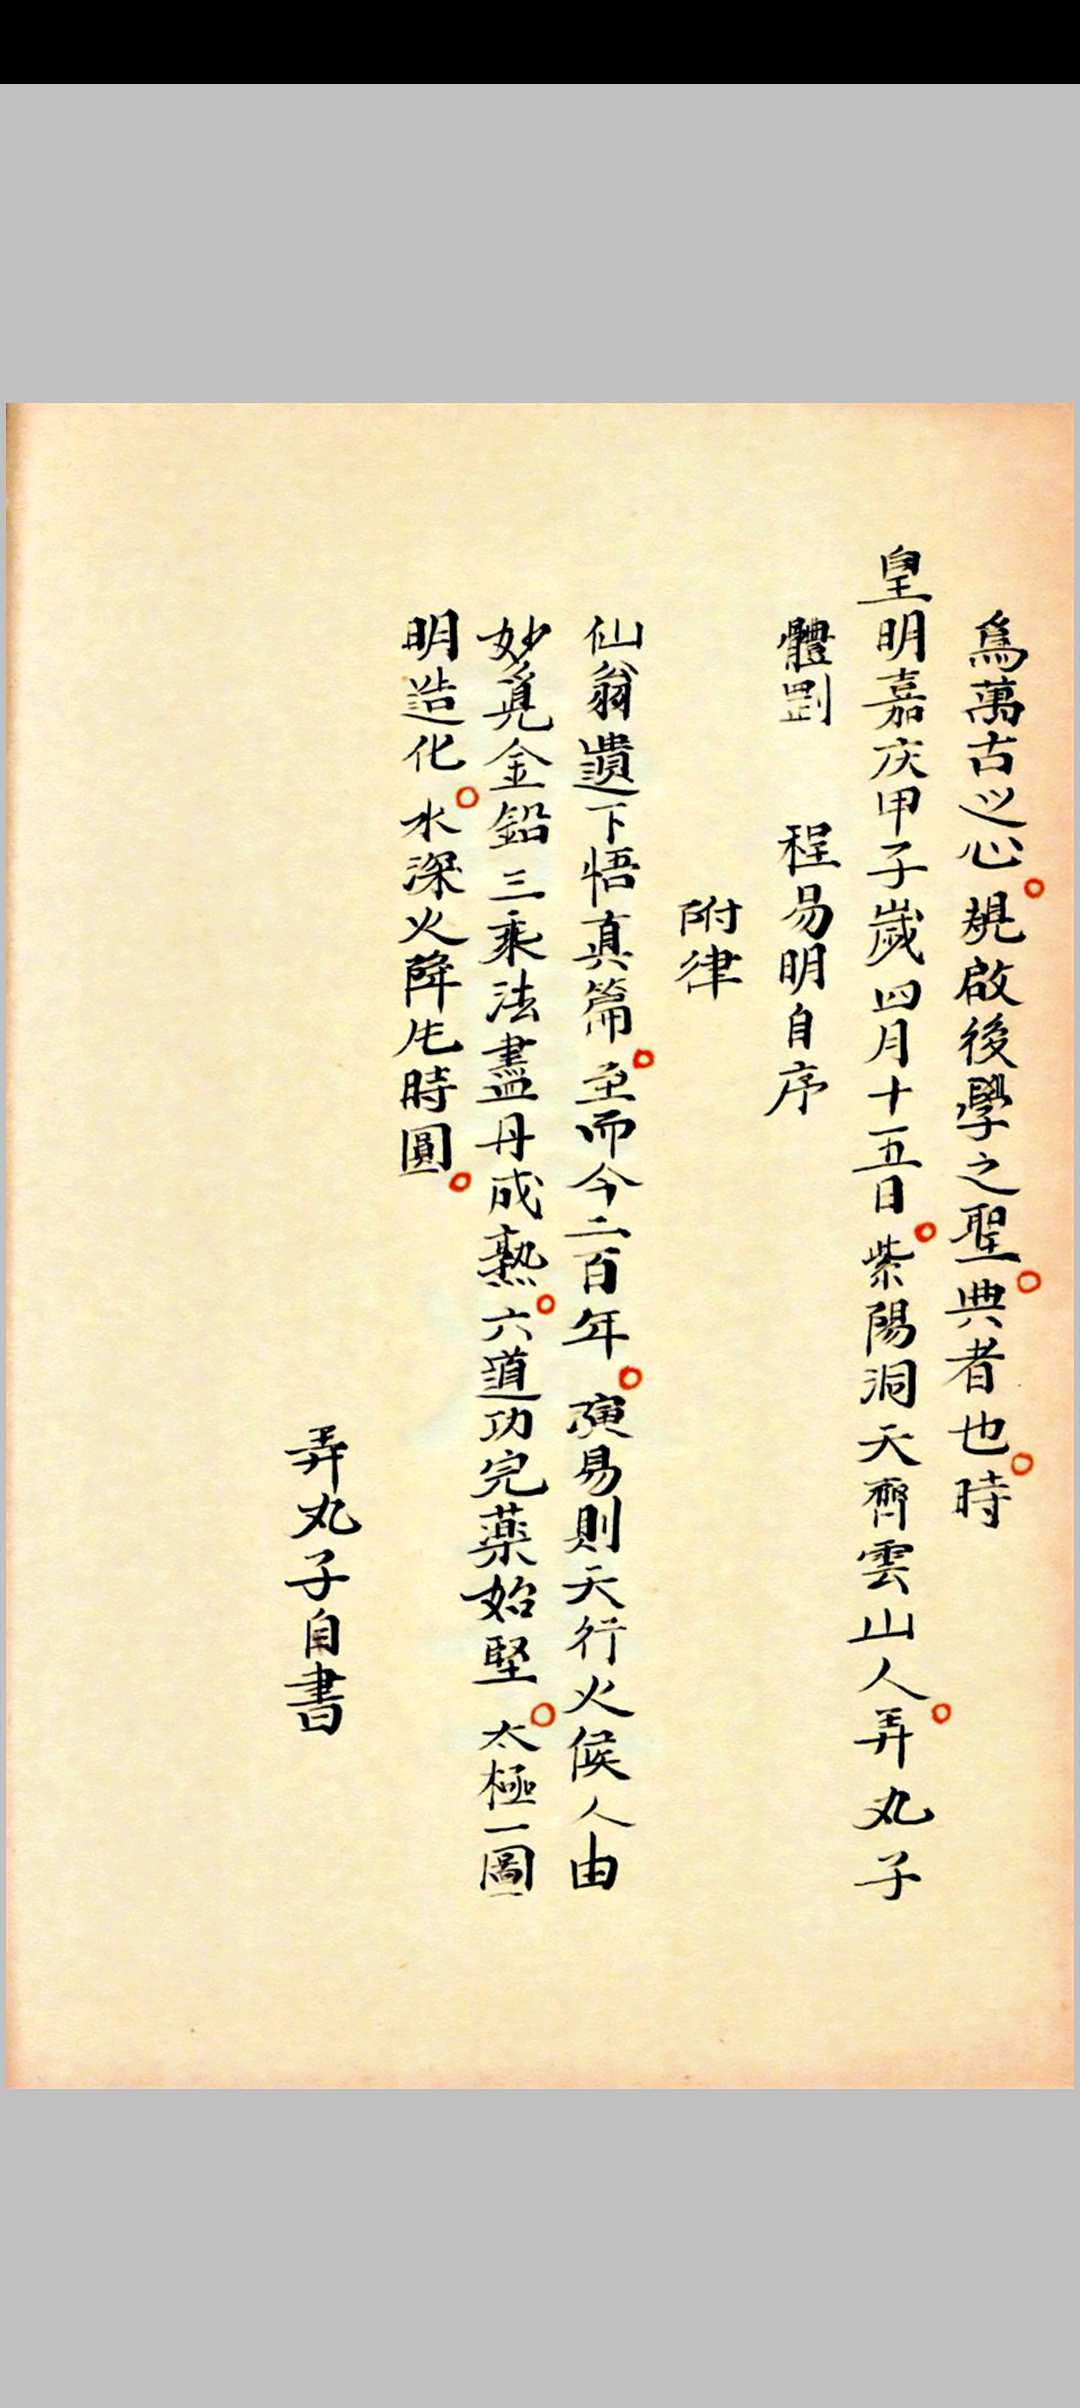 為萬古之心規啟後學之聖典者也時
皇明嘉庆甲子歲四月十五日紫陽洞天齊雲山人弄丸子
體剛　程易明自序
附律
仙翁遺下悟真篇至而今二百年演易則天行火候人由
妙覓金鉛三乘法盡丹成熟六道功完藥始堅太極一圖
明造化水深火降片時圓
弄丸子自書